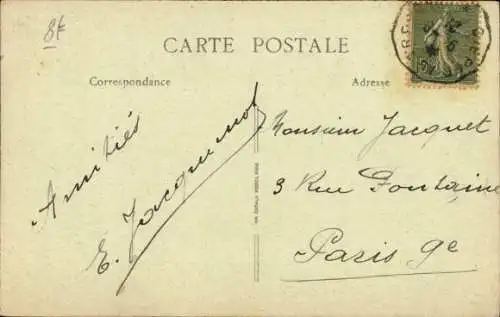 8f
CARTE POSTALE
Correspondance
Adresse
Amitiés
E. Jacquenot
Monsieur Jacquet
3 Rue Fontaine
Paris 9e